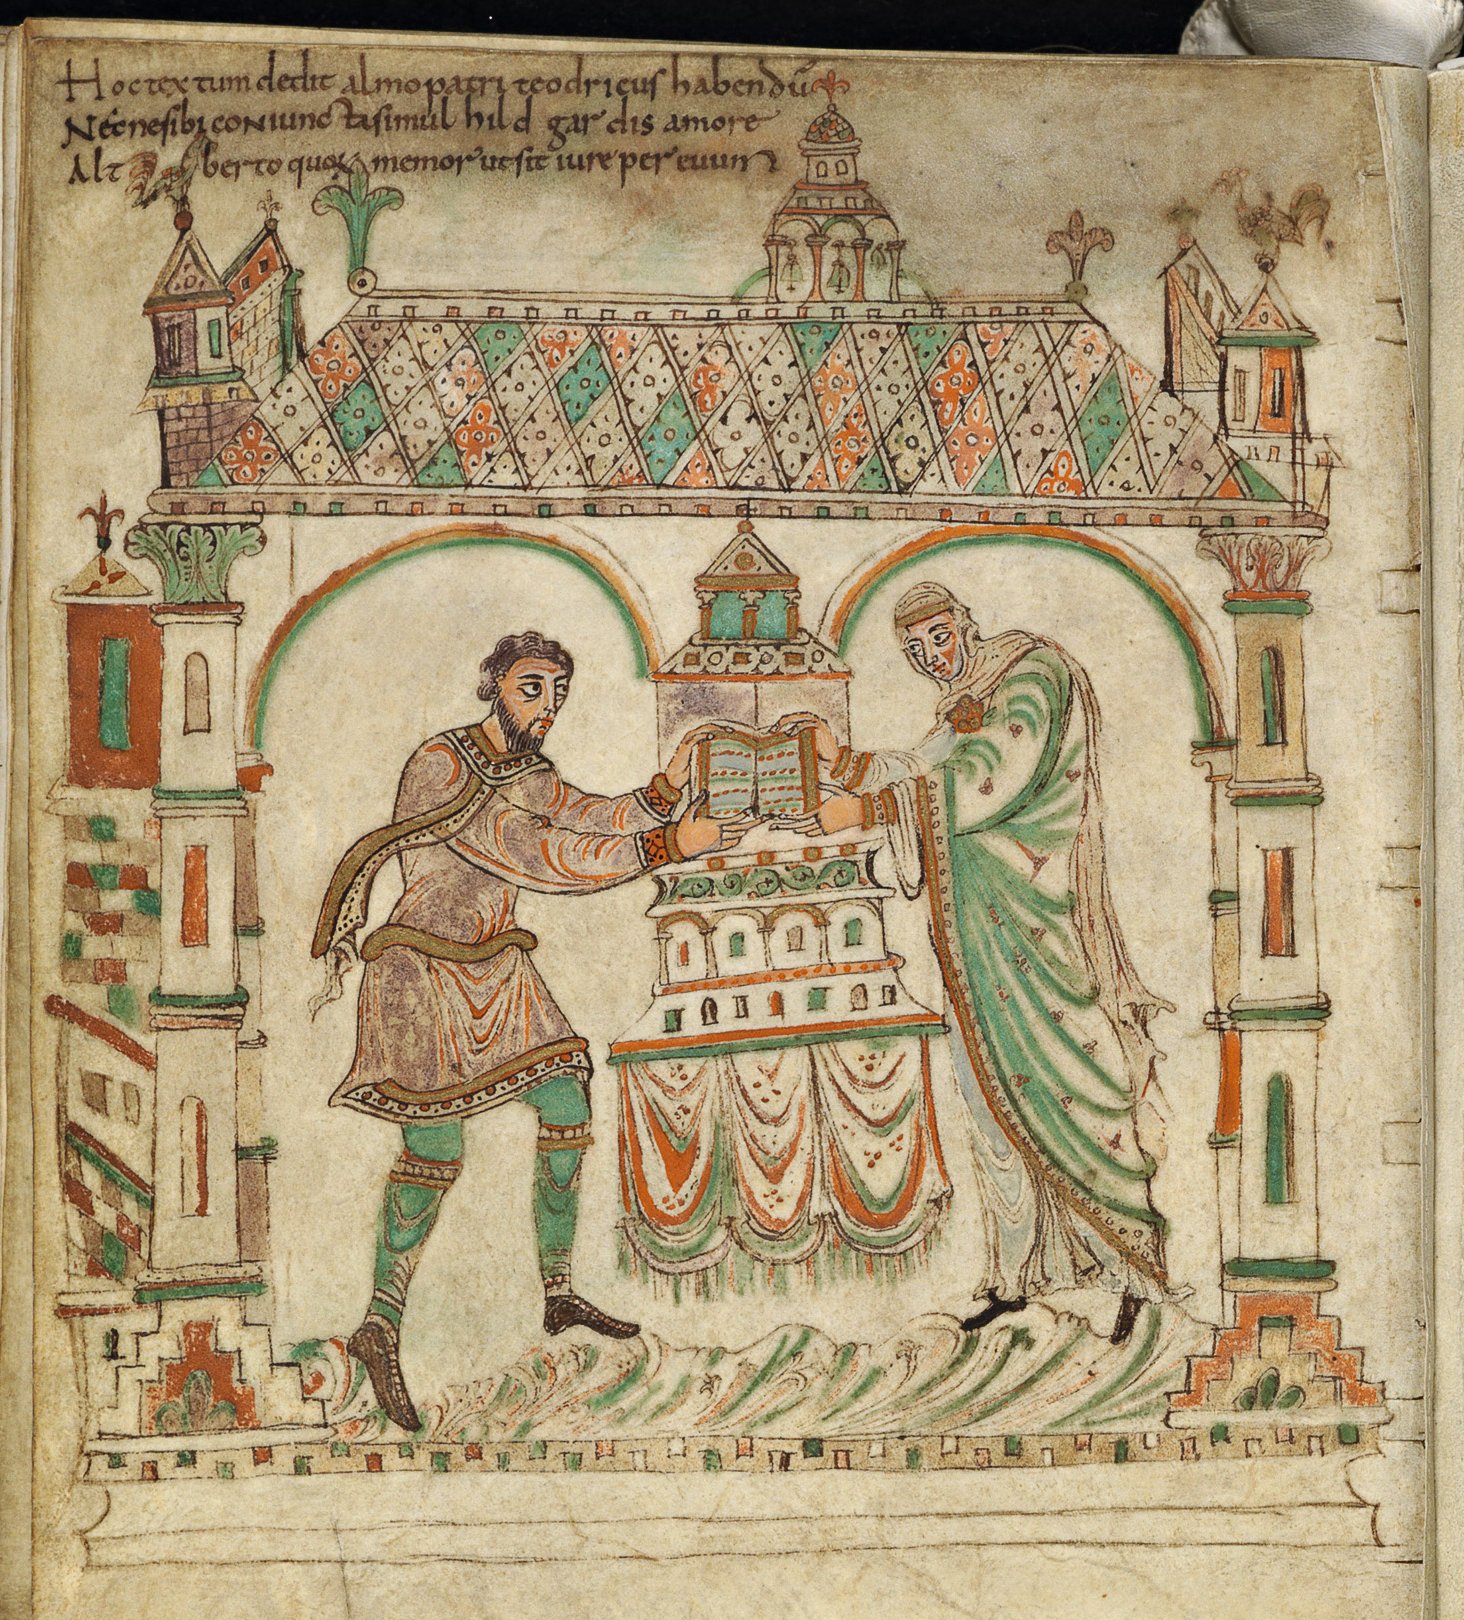 Hoc textum dedit almo patri teodricus habendū
Necne sibi coniuncta simul hildgardis amore
Altberto quoꝝ memor ut sit iure per euum